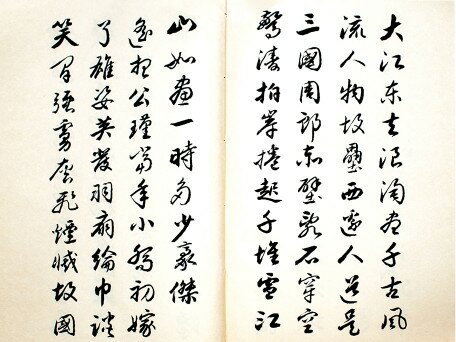 大江东去浪淘尽千古风
流人物故壘西邊人道是
三國周郎赤壁亂石穿空
驚濤拍岸捲起千堆雪江
山如畫一時多少豪傑
遙想公瑾當年小喬初嫁
了雄姿英發羽扇綸巾談
笑间强虜灰飛煙滅故國